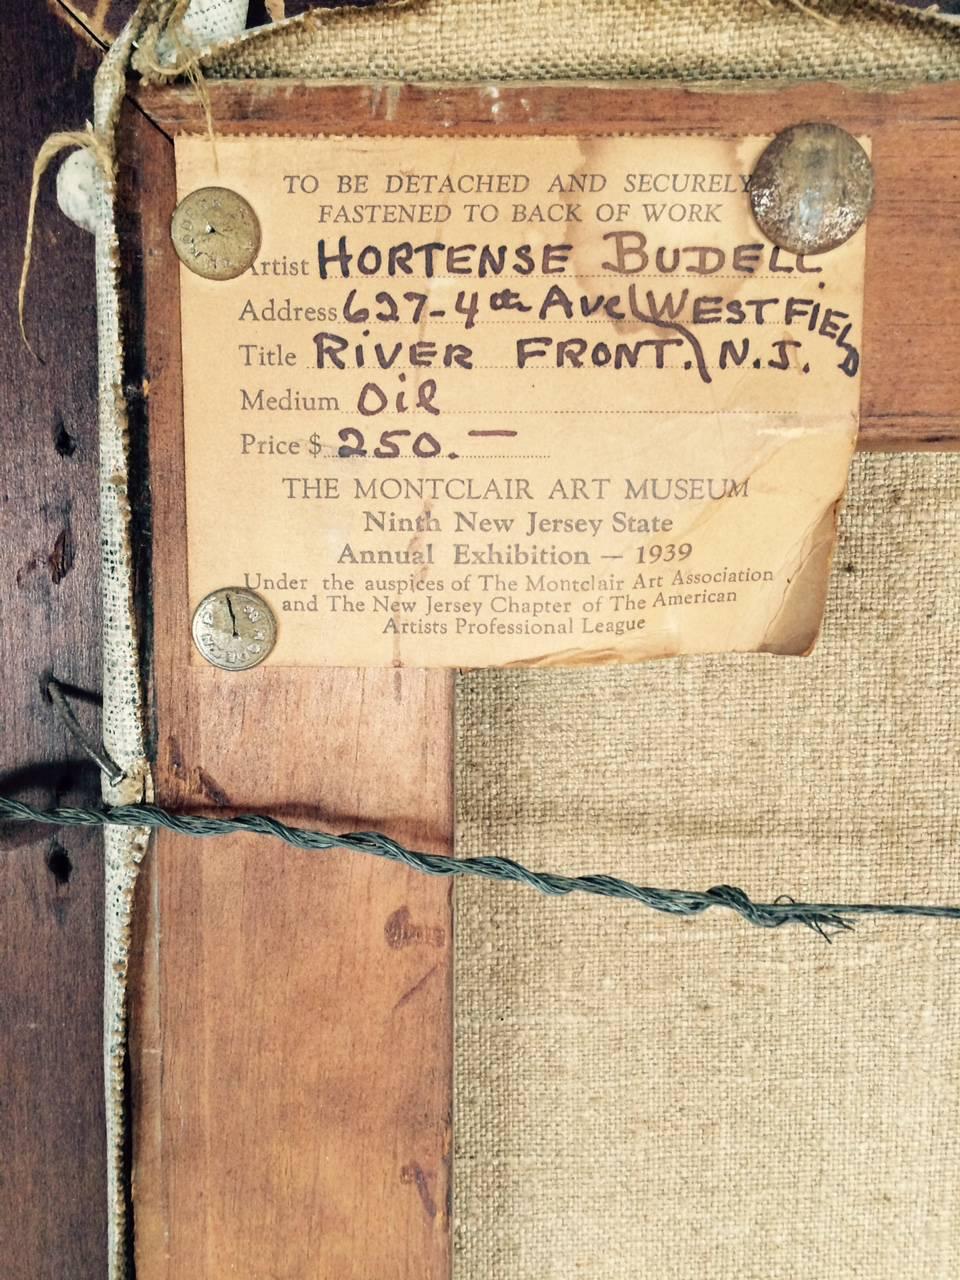 TO BE DETACHED AND SECURELY
FASTENED TO BACK OF WORK
Artist HORTENSE BUDELL.
Address 627-4th Ave WESTFIELD
Title RIVER FRONT. N.J.
Medium Oil
Price $ 250.—
THE MONTCLAIR ART MUSEUM
Ninth New Jersey State
Annual Exhibition — 1939
Under the auspices of The Montclair Art Association
and The New Jersey Chapter of The American
Artists Professional League